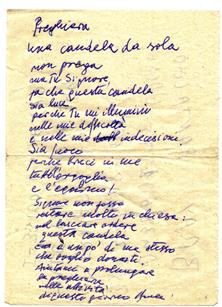 Preghiera
una candela da sola
non prega
ma tu Signore,
fa che questa candela
sia luce
perché Tu mi illumini
nelle mie difficoltà
e nelle mie indecisioni.
Sia fuoco
perché bruci in me
tutto l'orgoglio
e l'egoismo!
Signore non posso
restare molto in chiesa:
nel lasciare ardere
questa candela
è un po' di me stesso
che voglio donarti.
Aiutami a prolungare
la preghiera
nelle attività
di questo giorno. Amen